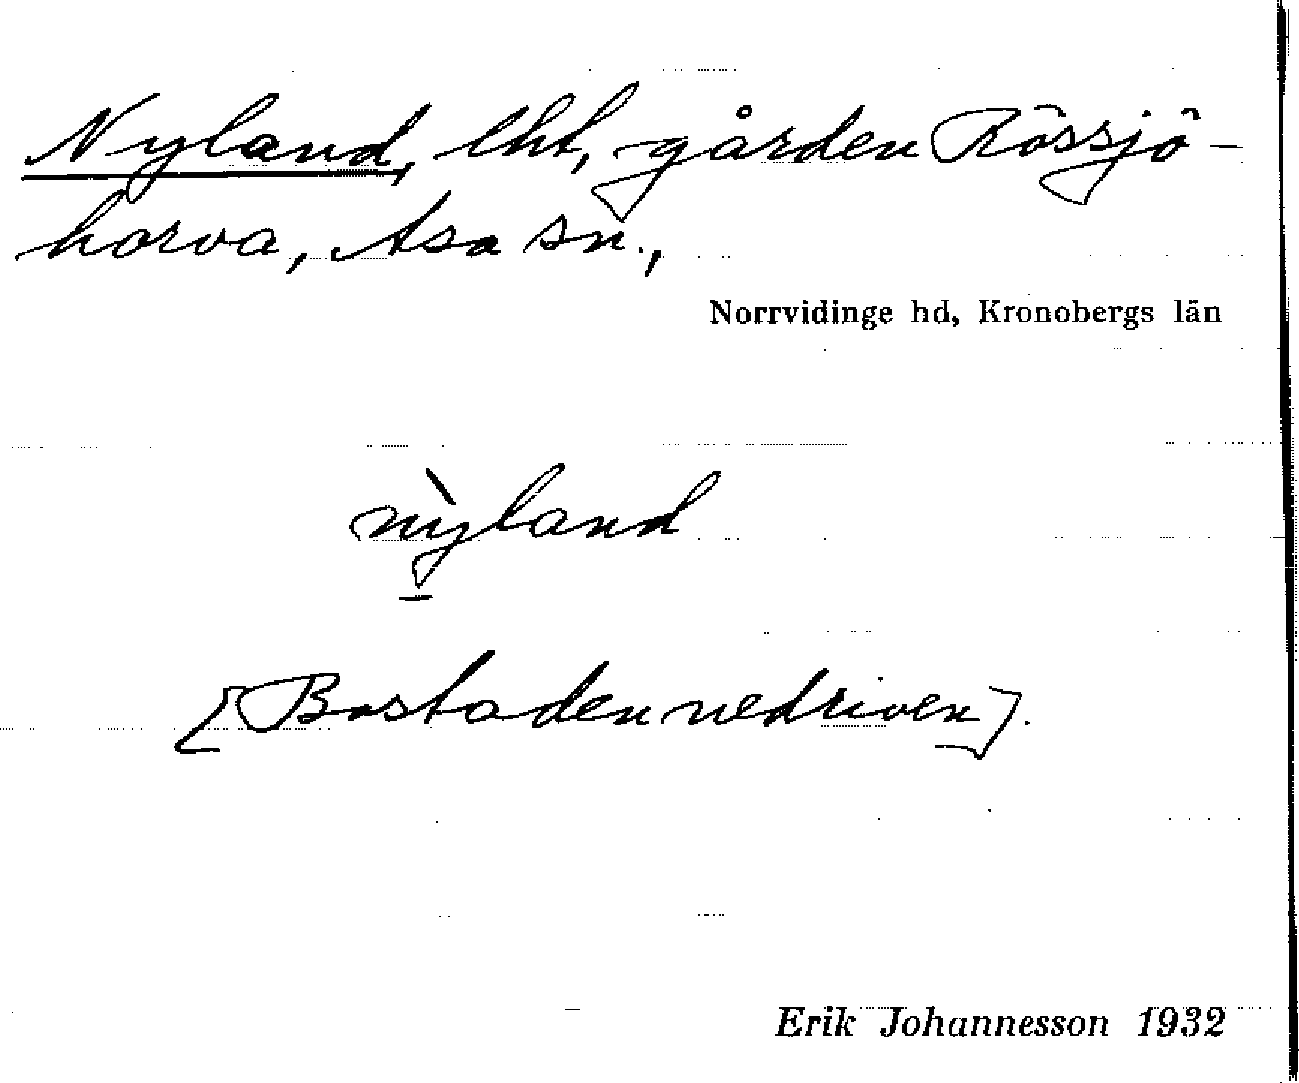 Nyland, lht, gården Rössjö-
horva, Asa sn.,
Norrvidinge hd, Kronobergs län
nỳland
[Bostaden nedriven].
Erik Johannesson 1932